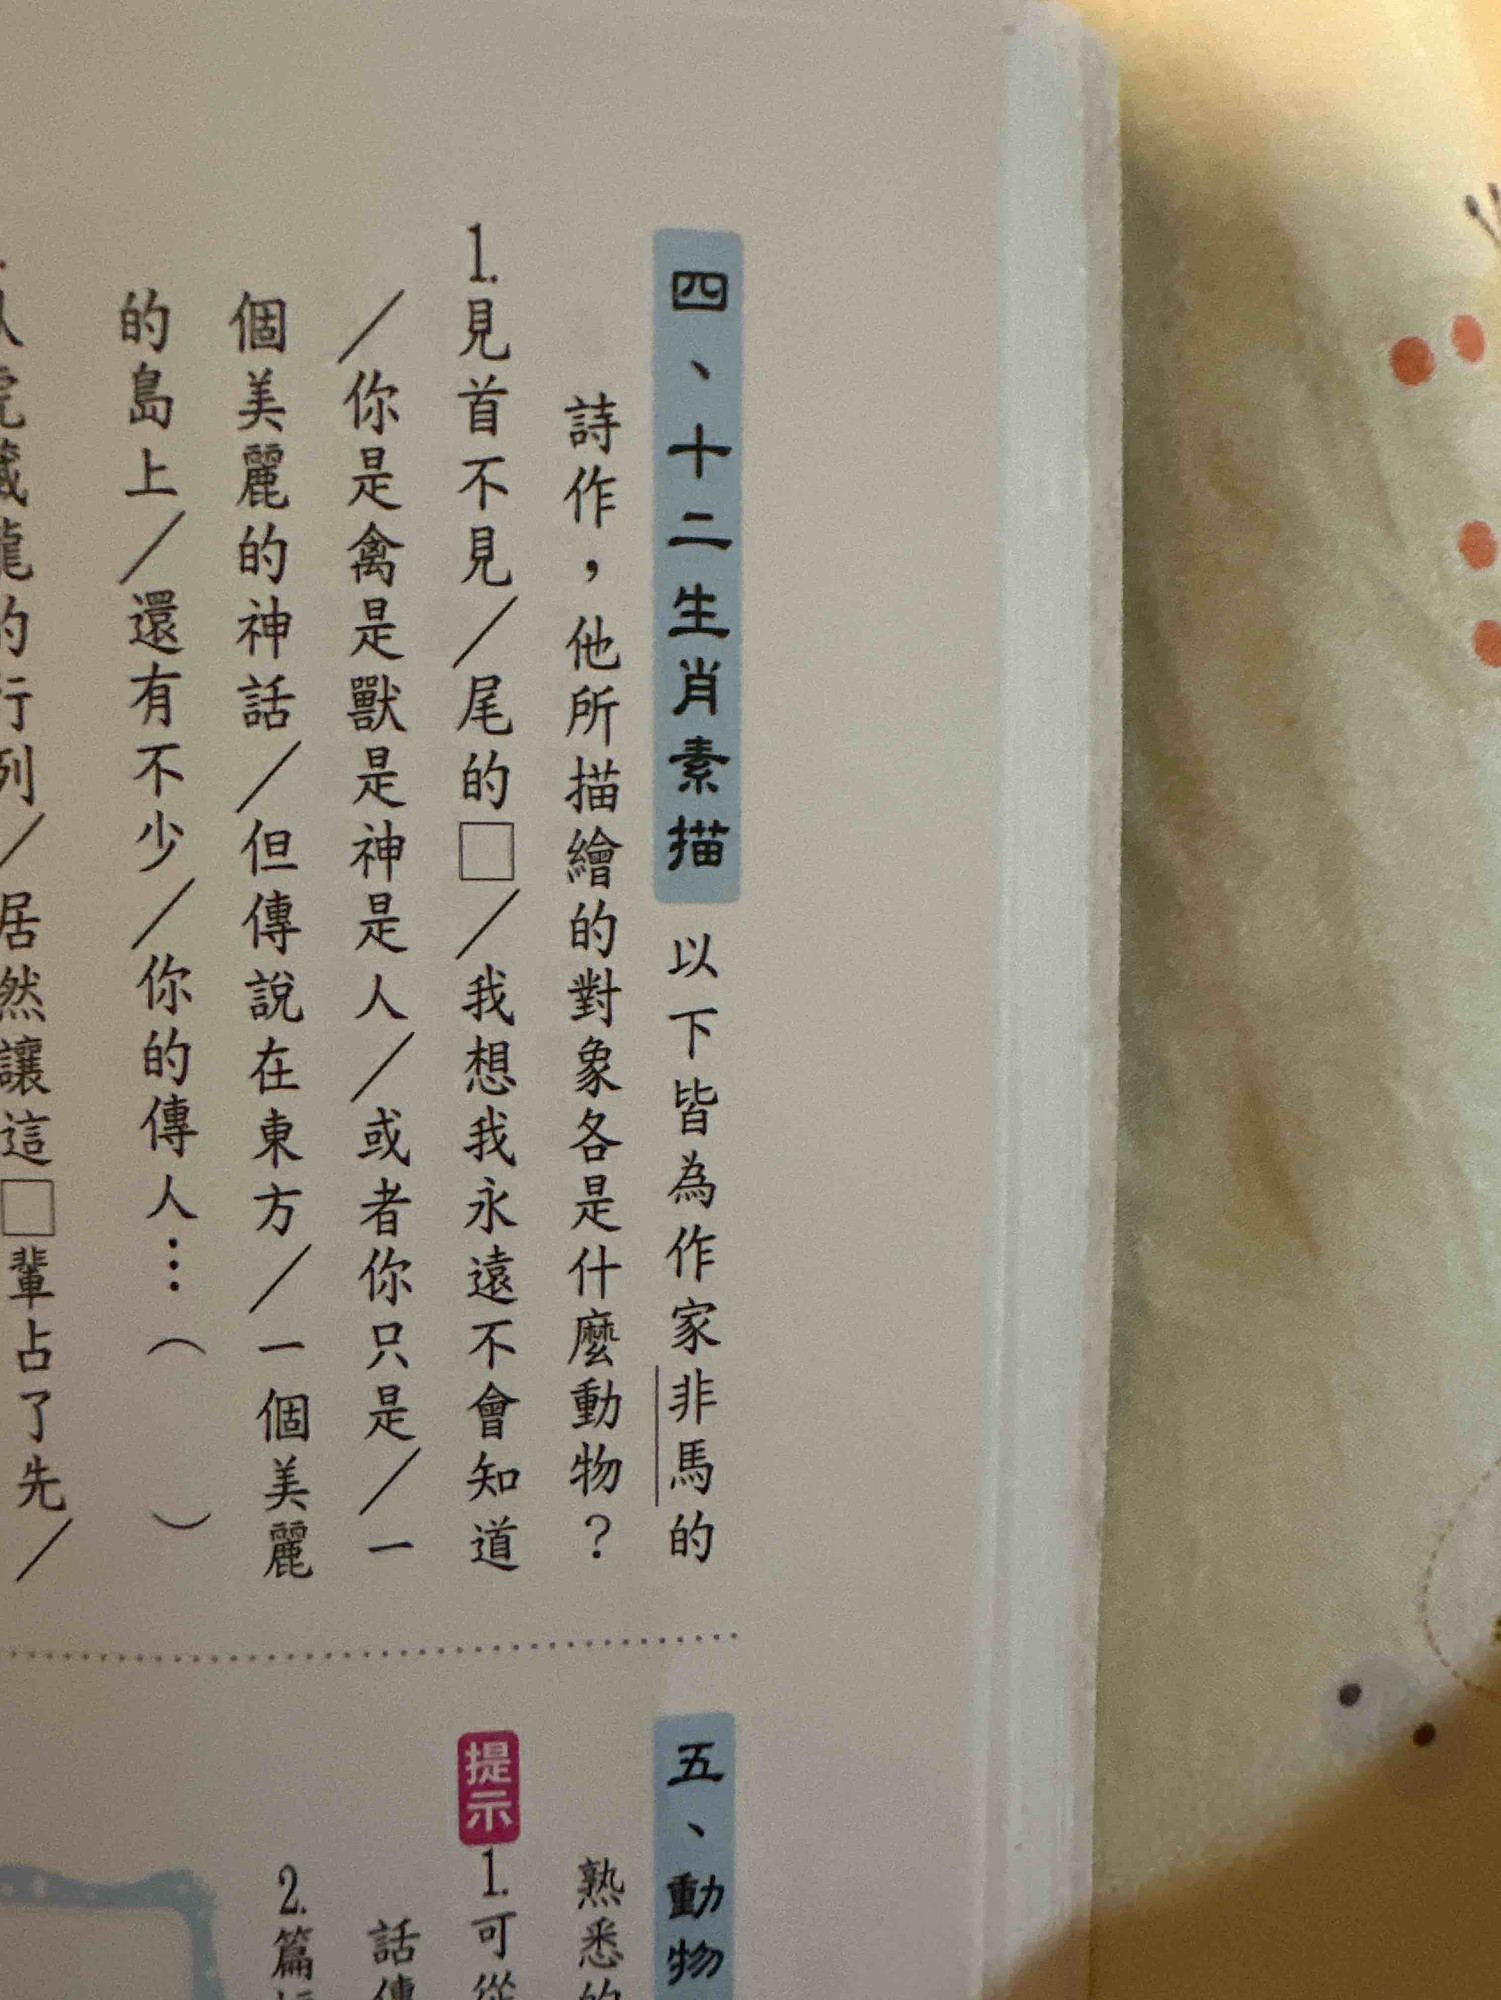 四、十二生肖素描 以下皆為作家非馬的
詩作，他所描繪的對象各是什麼動物？
1.見首不見／尾的□／我想我永遠不會知道
／你是禽是獸是神是人／或者你只是／一
個美麗的神話／但傳說在東方／一個美麗
的島上／還有不少／你的傳人…（ ）
龍的行列／居然讓這□輩占了先／
五、動物
熟悉的
提示 1.可從
話傳
2.篇